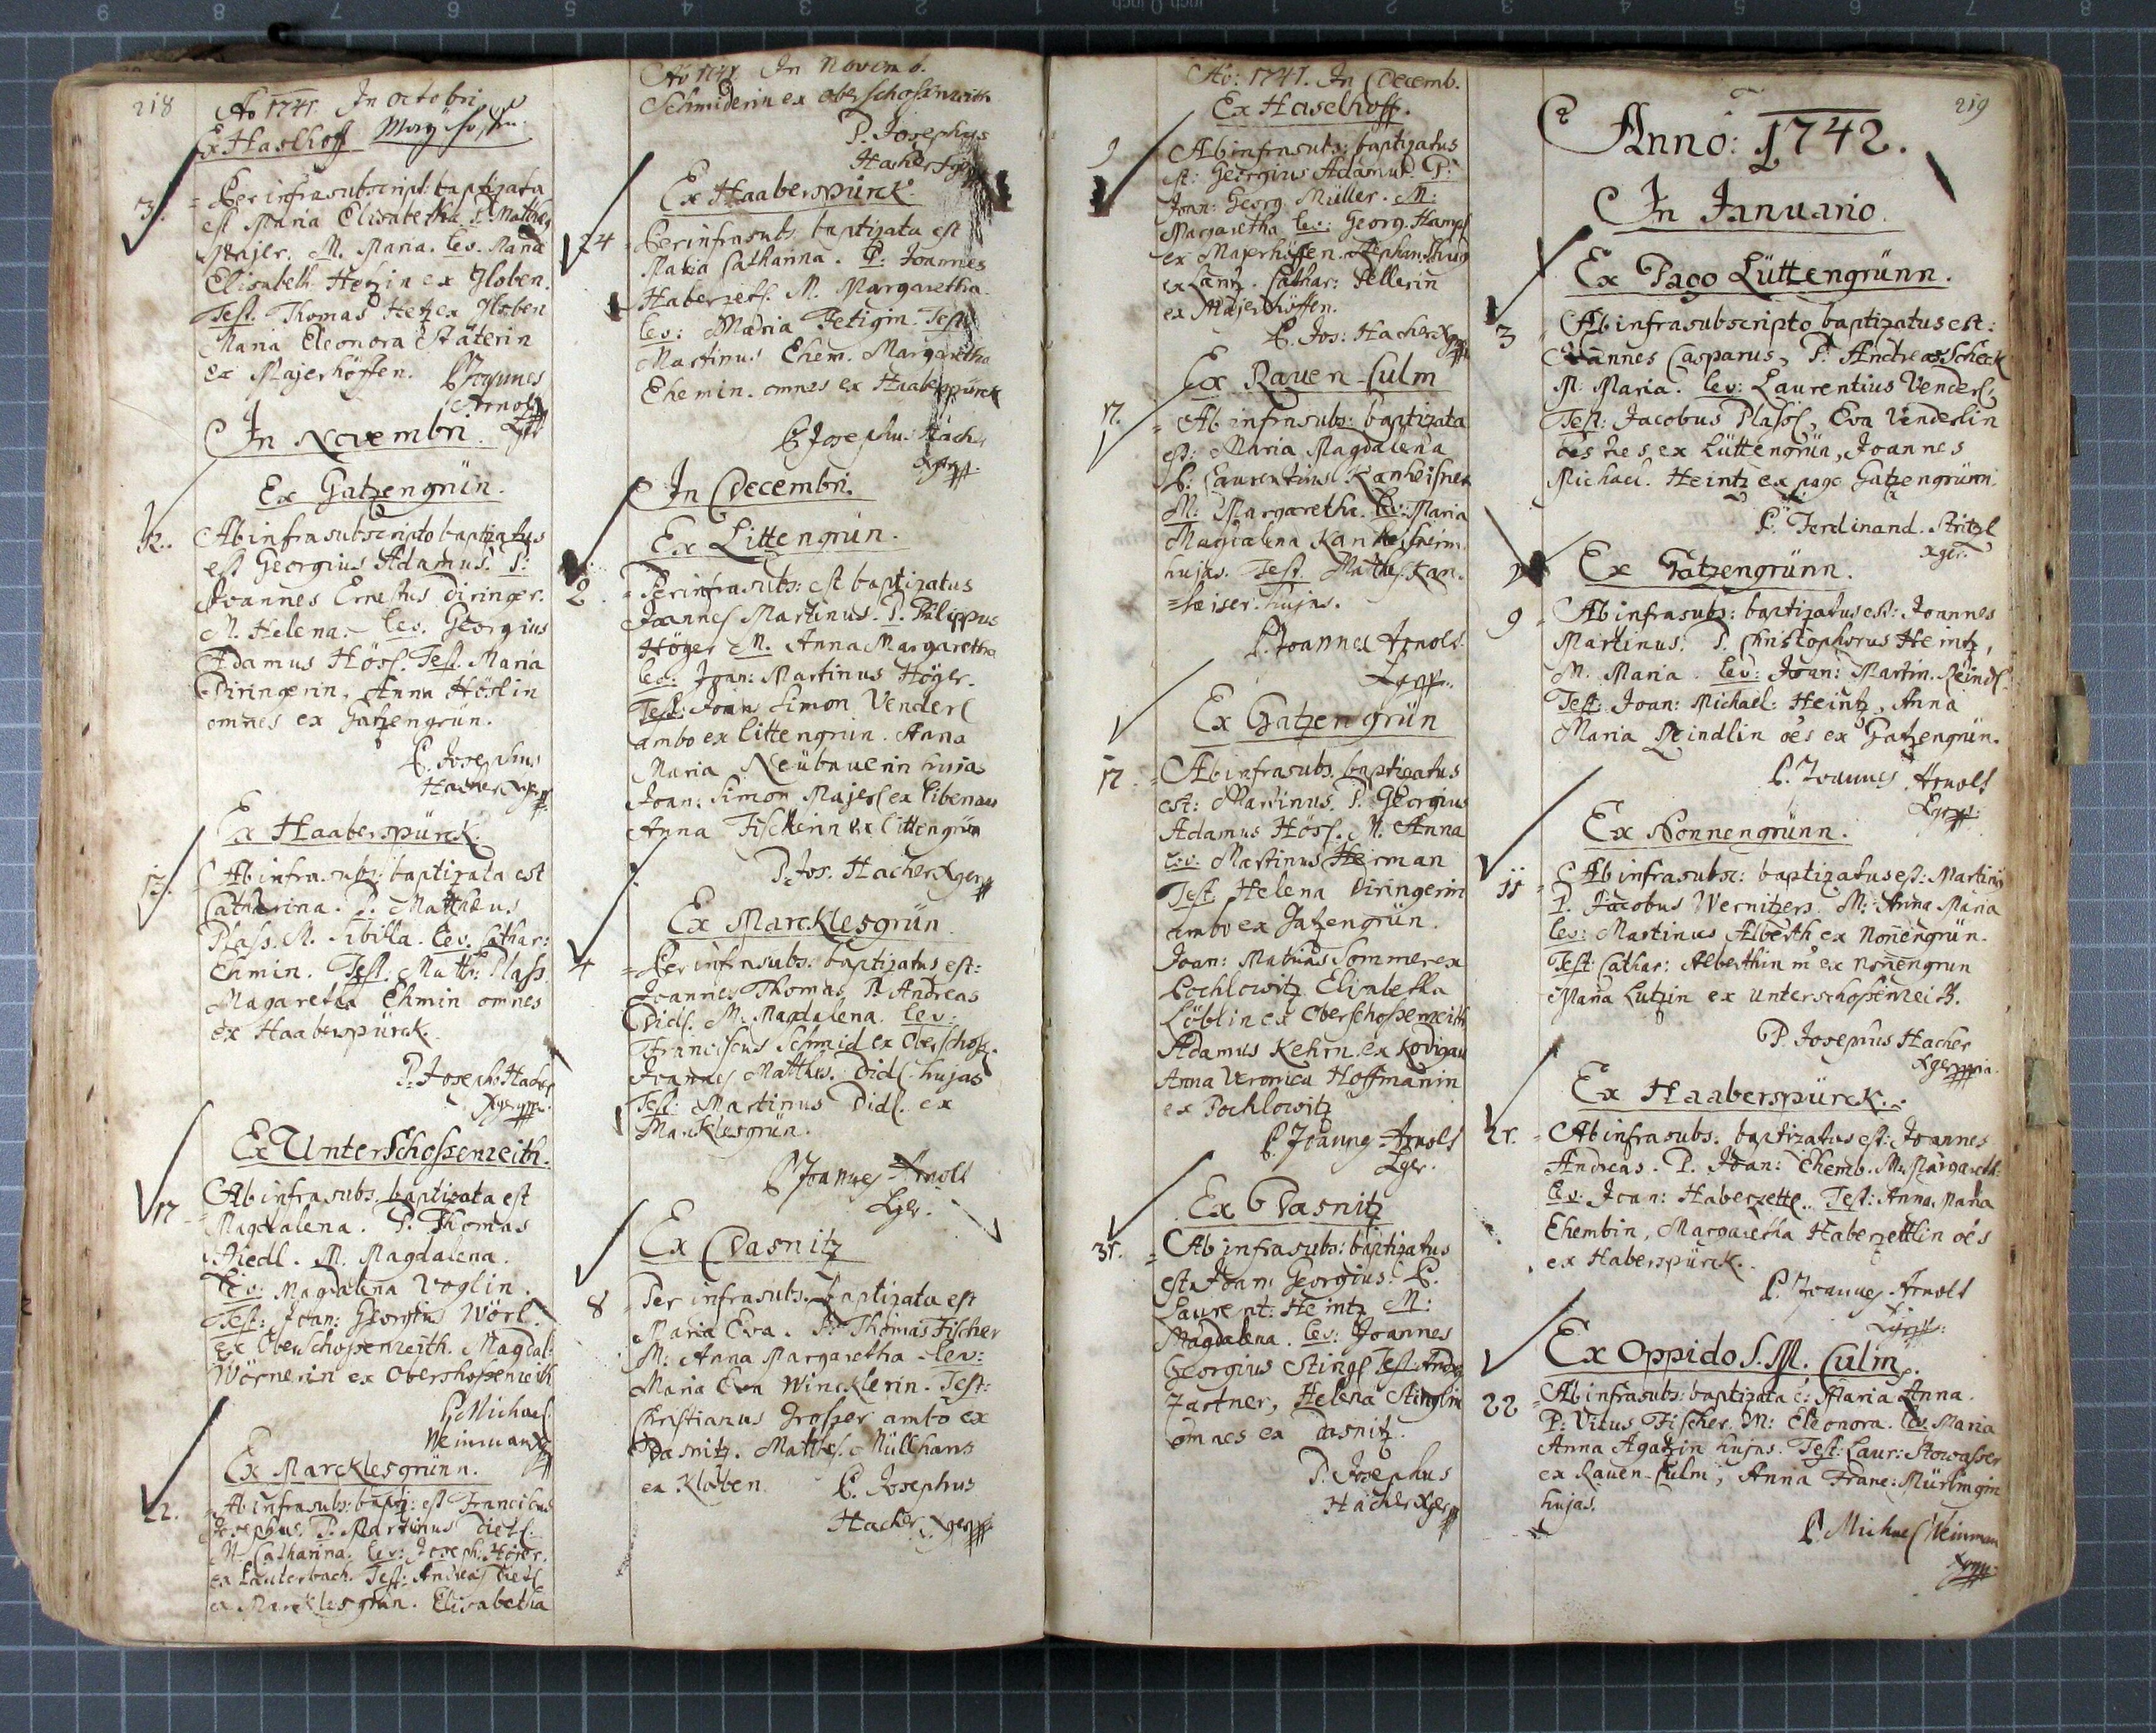 218
Ao 1741. In octobri
Ex Haslhoff
3. Per infrasubscript: baptizata
est Maria Elisabetha P. Matthes
Majer. M. Maria. lev. Maria
Elisabeth Hetzin ex Globen.
Test. Thomas Hetz ex Globen
Maria Eleonora Stäterin
ex Majerhöffen. P. Joannes
Arnolt
In Novembri.
Ex Gatzengrün.
12. Ab infrasubscripto baptizatus
est Georgius Adamus. P:
Joannes Ernestus Diringer.
M. Helena. lev. Georgius
Adamus Höss. Test. Maria
Diringerin, Anna Hösslin
omnes ex Gatzengrün.
P. Josephus
Hacher
Ex Haaberspürck.
13. Ab infrasubs: baptizata est
Catharina. P. Mattheus
Plass. M. Sibilla. Lev. Cathar:
Ehmin. Test: Math: Plass
Magaretha Ehmin omnes
ex Haaberspürck.
P. Joseph Hacher
Ex Unterschossenreith.
17 Ab infrasubs. baptizata est
Magdalena. P. Thomas
Riedl. M. Magdalena.
Lev: Magdalena Voglin.
Test: Joan: Georgius Wörl.
ex Oberschossenreith. Magdal:
Wörnerin ex Obershossenreith
P. Michael
Weinman
Ex Marcklesgrünn.
22. Ab infrasubs: bapti: est Francicus
Josephus. P. Martinus Dietl.
M. Catharina. lev: Joseph: Höjer.
ex Lauterbach. Test: Andreas Dietl
ex Marcklesgrün. Elisabetha
Ao 1741 In Novemb.
Schmiderin ex Oberschossenreith
P. Josephus
Hacher
Ex Haaberspürck
24 Per infrasubs: baptizata est
Maria Catharina. P: Joannes
Haberzetl. M. Margaretha.
lev: Maria Fetigin. Test:
Martinus Ehem. Margaretha
Ehemin. omnes ex Haaberspürck
P. Josephus Hacher
In Decembri.
Ex Littengrün.
2. Per infrasubs: est baptizatus
Joannes Martinus. P. Philippus
Höger M. Anna Margaretha
lev: Joan: Martinus Höger.
Test: Joan Simon Venderl
ambo ex Littengrün. Anna
Maria Neübauerin hujas
Joan: Simon Majerl ex Libenau
Anna Fischerin ex Littengrün
P. Jos. Hacher
Ex Marcklesgrün
4 Per infrasubs: baptizatus est:
Joannes Thomas. P. Andreas
Didl. M. Magdalena. lev:
Franciscus Schmid ex Oberschoss:
Joannes Matthes. Didl hujas
Test: Martinus Didl. ex
Marcklesgrün.
P. Joannes Arnolt
Ex Dasnitz
8 Per infrasubs. baptizata est
Maria Eva. P. Thomas Fischer
M: Anna Margaretha lev:
Maria Eva Wincklerin. Test:
Christianus Grosser ambo ex
Dasnitz. Matthes. Müllhans
ex Kloben. P. Josephus
Hacher
Ao: 1741. In Decemb.
Ex Haselhoff.
9 Ab infrasubs: baptizatus
est: Georgius Adamus. P:
Joan: Georg Müller. M:
Margaretha lev: Georg. Hampl
ex Majerhöffen. Stephan Krug
ex Lantz. Cathar: Pellerin
ex Majerhöffen.
P. Jos: Hacher
Ex Rauen-Culm
17. Ab infrasubs: baptizata
est: Maria Magdalena
P. Laurentius Kanheisner
M: Margaretha. lev: Maria
Magdalena Kanheisserin
hujas. Test. Matthes Kan-
=heiser. hujas.
P. Joannes Arnolt
Ex Gatzengrün
17. Ab infrasubs. baptizatus
est: Martinus. P. Georgius
Adamus Höss. M. Anna
Lev: Martinus Herman
Test. Helena Diringerin
ambo ex Gatzengrün.
Joan: Matias Sommer ex
Pochlowitz Elisabetha
Löblin ex Oberschossenreith
Adamus Kehrn ex Kodigau
Anna Veronica Hoffmanin
ex Pochlowitz
P. Joannes Arnolt
Ex Dasnitz
31. Ab infrasubs: baptizatus
est Joan: Georgius. P.
Laurent: Heintz M:
Magdalena. lev: Joannes
Georgius Stingl Test: Andre
Zartner, Helena Stinglin
omnes ex Dasnitz.
P. Josephus
Hacher
219
Anno: 1742.
In Januario.
Ex Pago Lüttengrünn.
3 Ab infrasubscripto baptizatus est:
Joannes Casparus, P. Andreas Scheck
M. Maria. lev: Laurentius Venderl,
Test: Jacobus Plassl, Eva Venderlin
oes hes ex Lüttengrün, Joannes
Michael. Heintz ex pago Gatzengrünn.
P. Ferdinand. Stritzl
Ex Gatzengrünn.
9 Ab infrasubs: baptizatus est: Joannes
Martinus. P. Christophorus Heintz,
M. Maria. lev: Joan: Martin. Reindl.
Test: Joan: Michael: Heintz, Anna
Maria Reindlin oes ex Gatzengrün.
P. Joannes Arnolt
Ex Nonnengrünn.
11 Ab infrasubsc: baptizatus est: Martinus
P. Jacobus Wernitzer. M: Anna Maria
lev: Martinus Alberth ex Nonengrün.
Test: Cathar: Alberthin ex Nonengrun
Maria Lutzin ex Unterschossenreith.
P. Josephus Hacher
Ex Haaberspürck.
21. Ab infrasubs: baptizatus est: Joannes
Andreas. P. Joan: Ehemb. M. Margareth:
lev: Joan: Haberzettl. Test: Anna Maria
Ehembin, Margaretha Haberzettlin oes
ex Haberspürck.
P. Joannes Arnolt
Ex Oppido S. M. Culm.
22 Ab infrasubs: baptizata e: Maria Anna.
P: Vitus Fischer. M: Eleonora. lev. Maria
Anna Agatzin hujas. Test: Laur: Stowasser
ex Rauen-Culm, Anna Franc: Mürlingin
hujas.
P. Michael Weinman